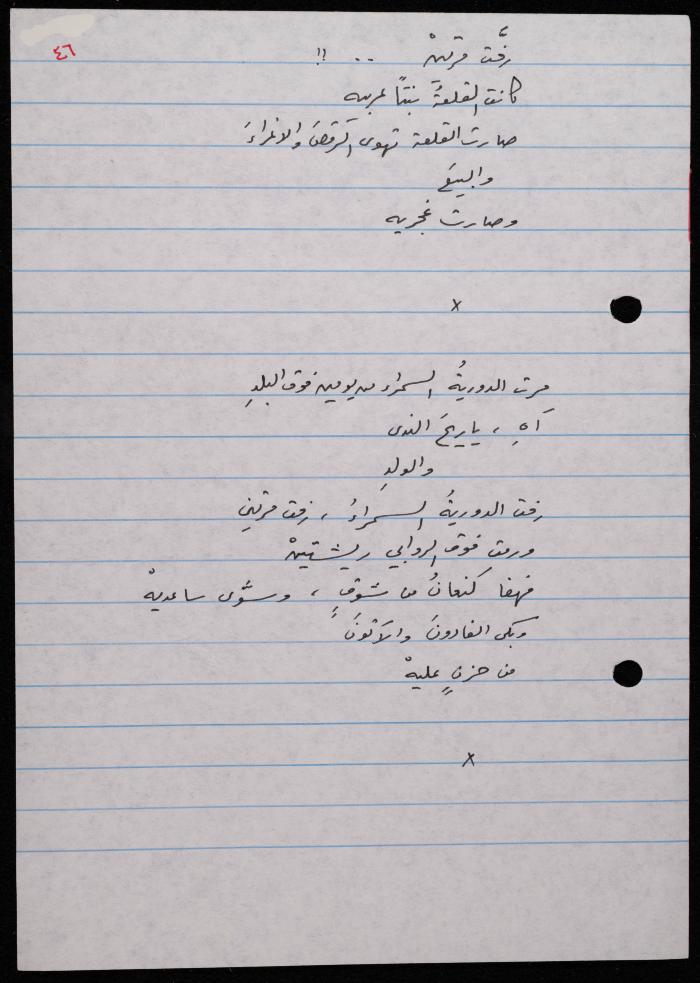 ٤٦
رفَّت مرتينْ .. !!
كانت القلعةُ بنتًا عربيه
صارت القلعة تهوى الرقصَ والاغراءَ
والبيعَ
وصارت غجريه
x
مرت الدوريةُ السمراء من يومين فوق البلدِ
آهِ ، ياريحَ الندى
والولدِ
رفت الدوريةُ السمراءُ ، رفت مرتينِ
ورمت فوق الروابي ريشتينْ
فهفا كنعانُ من شوقٍ ، وسوَّى ساعديهْ
وبكى الغادونَ والآتونَ
من حزنٍ عليهْ
x